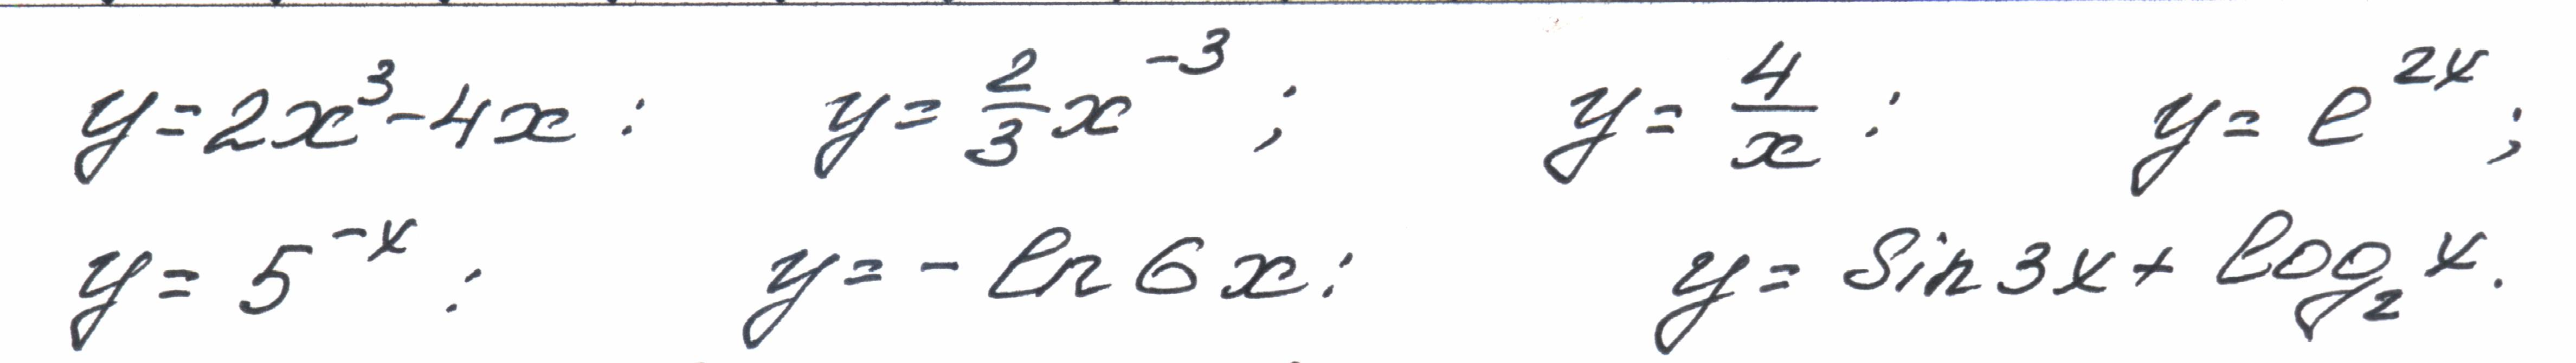 y=2x³-4x : y= 2/3 x⁻³ ; y= 4/x : y= e²ˣ ;
y= 5⁻ˣ : y= -ln 6x : y= sin 3x + log₂ x.